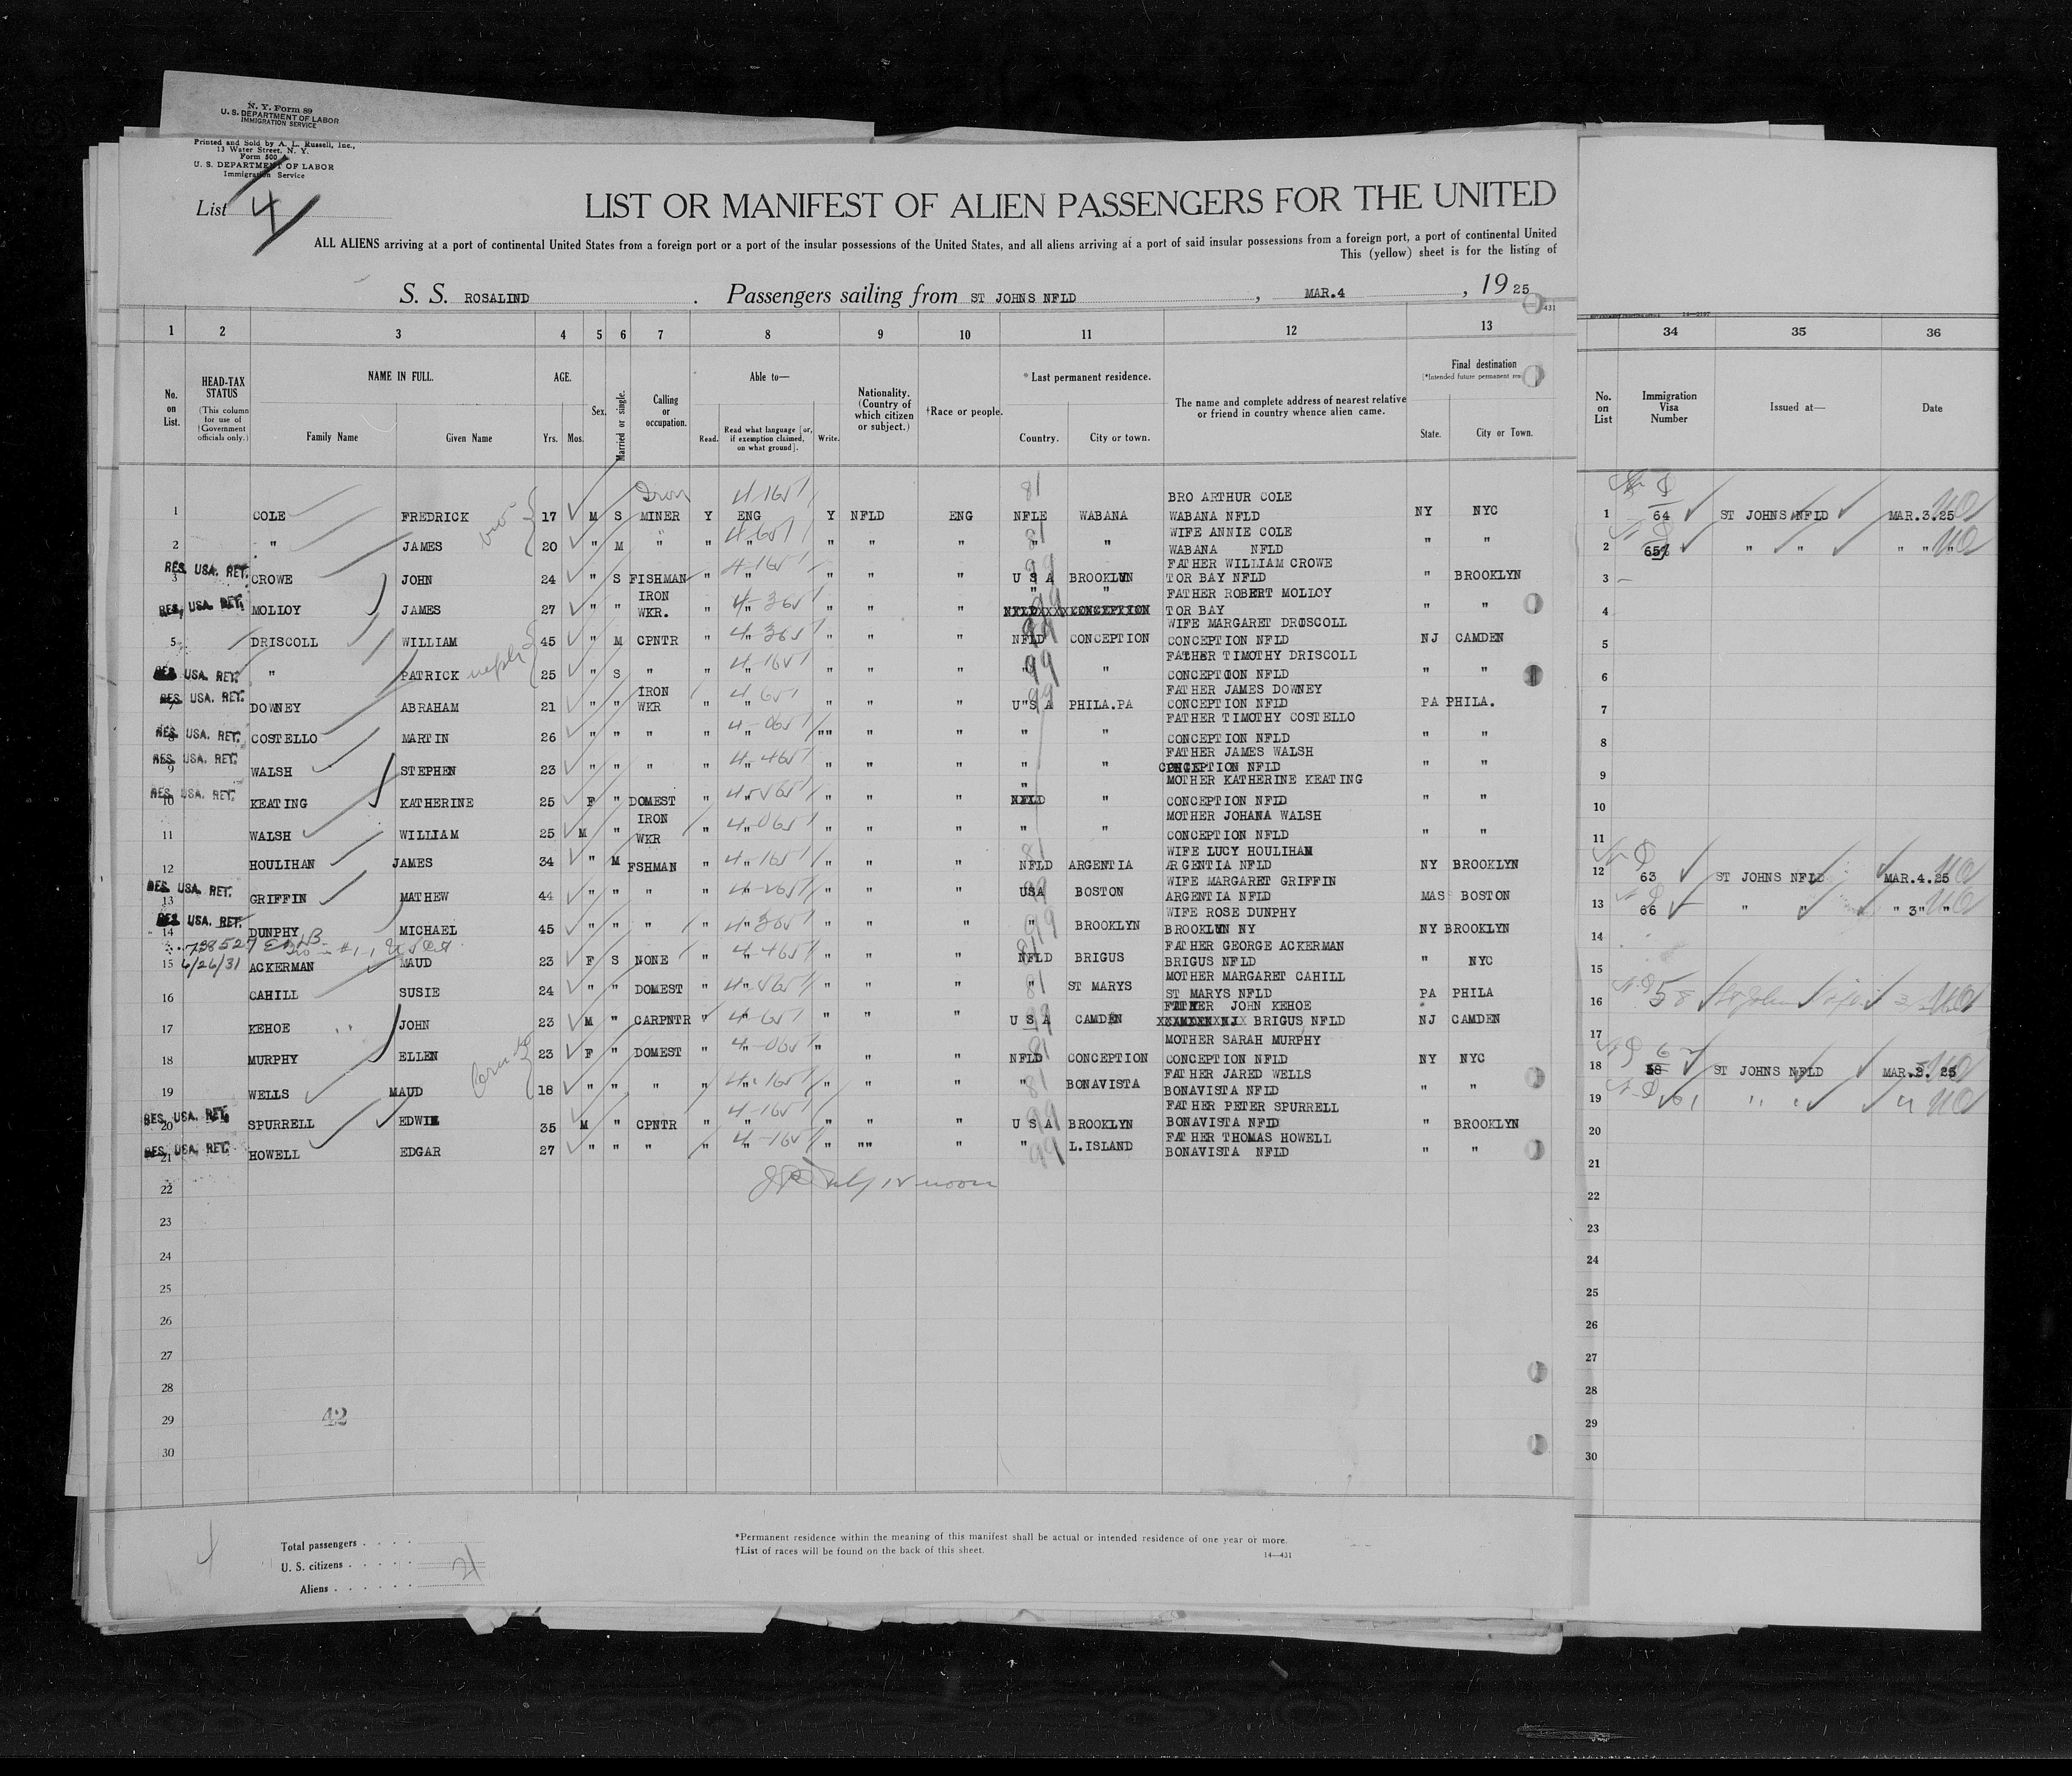 N. Y. Form 89
U. S. DEPARTMENT OF LABOR
IMMIGRATION SERVICE
Printed and Sold by A. L. Russell, Inc.,
13 Water Street, N. Y.
Form 500
U. S. DEPARTMENT OF LABOR
Immigration Service
List 4
LIST OR MANIFEST OF ALIEN PASSENGERS FOR THE UNITED
ALL ALIENS arriving at a port of continental United States from a foreign port or a port of the insular possessions of the United States, and all aliens arriving at a port of said insular possessions from a foreign port, a port of continental United
This (yellow) sheet is for the listing of
S. S. ROSALIND . Passengers sailing from ST JOHNS NFLD , MAR.4 , 1925
1 2 3 4 5 6 7 8 9 10 11 12 13 34 35 36
No. on List. HEAD-TAX STATUS (This column for use of Government officials only.) NAME IN FULL. Family Name Given Name AGE. Yrs. Mos. Sex. Married or single. Calling or occupation. Able to— Read. Read what language [or, if exemption claimed, on what ground]. Write. Nationality. (Country of which citizen or subject.) †Race or people. *Last permanent residence. Country. City or town. The name and complete address of nearest relative or friend in country whence alien came. Final destination State. City or Town.
No. on List Immigration Visa Number Issued at— Date
Iron BRO ARTHUR COLE
1 COLE FREDRICK 17 M S MINER Y ENG Y NFLD ENG NFLE WABANA WABANA NFLD NY NYC 1 64 ST JOHNS NFLD MAR.3.25
WIFE ANNIE COLE
2 " JAMES 20 " M " " " " " " " " WABANA NFLD " " 2 " " " " "
FATHER WILLIAM CROWE
RES. USA. RET.
3 CROWE JOHN 24 " S FISHMAN " " " " " U S A BROOKLYN TOR BAY NFLD " BROOKLYN 3
IRON " " FATHER ROBERT MOLLOY
RES. USA. RET.
MOLLOY JAMES 27 " " WKR. " " " " " TOR BAY " " 4
WIFE MARGARET DRISCOLL
5 DRISCOLL WILLIAM 45 " M CPNTR " " " " " NFLD CONCEPTION CONCEPTION NFLD NJ CAMDEN 5
FATHER TIMOTHY DRISCOLL
RES. USA. RET.
" PATRICK 25 " S " " " " " " " " CONCEPTION NFLD " " 6
IRON FATHER JAMES DOWNEY
RES. USA. RET.
DOWNEY ABRAHAM 21 " " WKR " " " " " U S A PHILA.PA CONCEPTION NFLD PA PHILA. 7
FATHER TIMOTHY COSTELLO
RES. USA. RET.
COSTELLO MARTIN 26 " " " " " "" " " " " CONCEPTION NFLD " " 8
FATHER JAMES WALSH
RES. USA. RET.
9 WALSH STEPHEN 23 " " " " " " " " " " CONCEPTION NFLD " " 9
MOTHER KATHERINE KEATING
RES. USA. RET.
10 KEATING KATHERINE 25 F " DOMEST " " " " " NFLD " CONCEPTION NFLD " " 10
IRON MOTHER JOHANA WALSH
11 WALSH WILLIAM 25 M " WKR " " " " " " " CONCEPTION NFLD " " 11
WIFE LUCY HOULIHAN
12 HOULIHAN JAMES 34 " M FSHMAN " " " " " NFLD ARGENTIA ARGENTIA NFLD NY BROOKLYN 12 63 ST JOHNS NFLD MAR.4.25
WIFE MARGARET GRIFFIN
RES. USA. RET.
13 GRIFFIN MATHEW 44 " " " " " " " " USA BOSTON ARGENTIA NFLD MAS BOSTON 13 66 " " " 3" "
WIFE ROSE DUNPHY
RES. USA. RET.
14 DUNPHY MICHAEL 45 " " " " " " " " " BROOKLYN BROOKLYN NY NY BROOKLYN 14
FATHER GEORGE ACKERMAN
15 4/26/31 ACKERMAN MAUD 23 F S NONE " " " " " NFLD BRIGUS BRIGUS NFLD " NYC 15
MOTHER MARGARET CAHILL
16 CAHILL SUSIE 24 " " DOMEST " " " " " " ST MARYS ST MARYS NFLD PA PHILA 16 58
FATHER JOHN KEHOE
17 KEHOE JOHN 23 M " CARPNTR " " " " " U S A CAMDEN BRIGUS NFLD NJ CAMDEN 17
MOTHER SARAH MURPHY
18 MURPHY ELLEN 23 F " DOMEST " " " " " NFLD CONCEPTION CONCEPTION NFLD NY NYC 18 62 ST JOHNS NFLD MAR.3. 25
FATHER JARED WELLS
19 WELLS MAUD 18 " " " " " " " " " BONAVISTA BONAVISTA NFLD " " 19 61 " " "
FATHER PETER SPURRELL
RES. USA. RET.
20 SPURRELL EDWIN 35 M " CPNTR " " " " " U S A BROOKLYN BONAVISTA NFLD " BROOKLYN 20
FATHER THOMAS HOWELL
RES. USA. RET.
21 HOWELL EDGAR 27 " " " " " " "" " " L.ISLAND BONAVISTA NFLD " " 21
22 22
23 23
24 24
25 25
26 26
27 27
28 28
29 42 29
30 30
Total passengers . . . .
U. S. citizens . . . . . 21
Aliens . . . . . .
*Permanent residence within the meaning of this manifest shall be actual or intended residence of one year or more.
†List of races will be found on the back of this sheet. 14—431